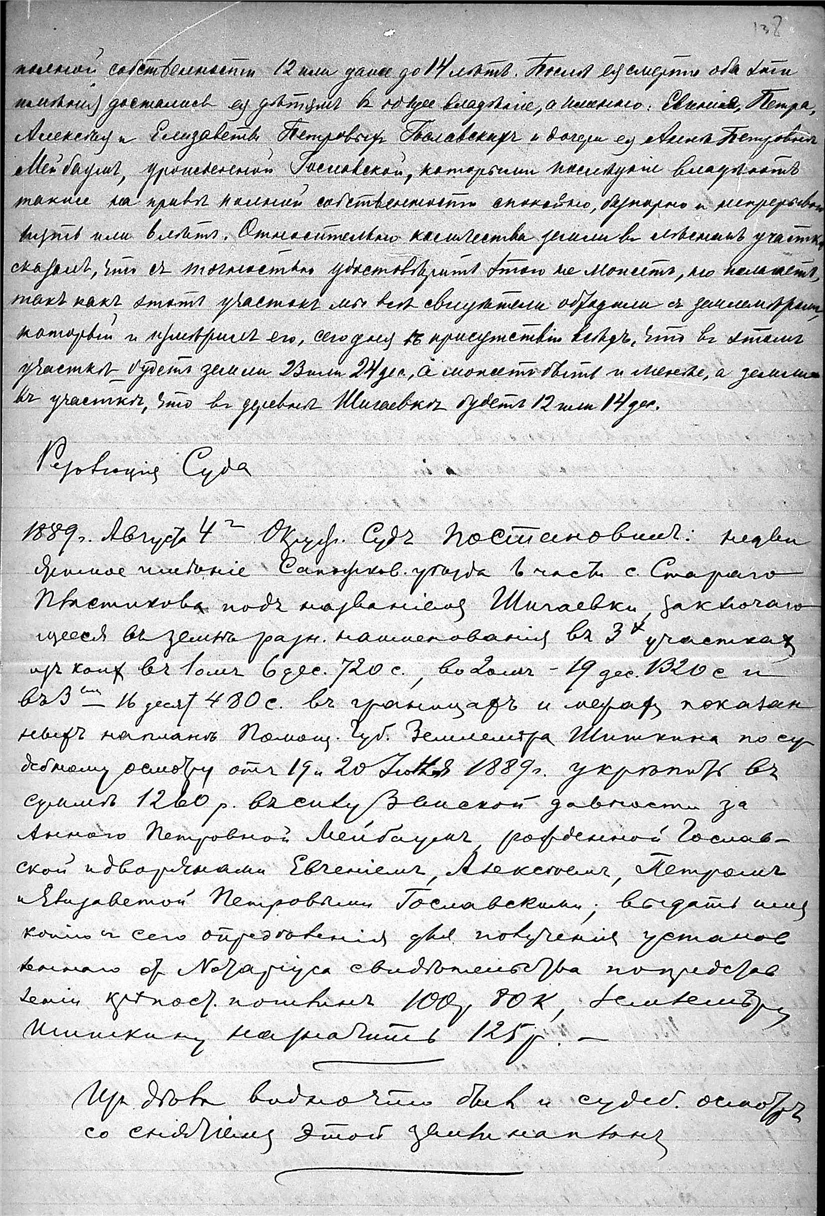 138
полной собственности 12 или даже до 14 летъ. После ея смерти оба эти
имѣнія достались ея дѣтямъ въ общее владѣніе, а именно: Евгенію, Петра,
Алексѣя и Елизаветы Петровыхъ Гославскихъ и дочери ея Аннѣ Петровнѣ
Мейбаумъ, урожденной Гославской, которыми последніе владѣютъ
также на правѣ полной собственности спокойно, безспорно и непрерывно
пять или 6 лѣтъ. Относительно количества земли въ участкѣ
сказалъ, что съ точностью удостовѣрить этого не можетъ, но полагаетъ,
такъ какъ этотъ участокъ мы всѣ свидѣтели обходили съ землемѣромъ,
который и измѣрилъ его, сегодня въ присутствіи всѣхъ, что въ этомъ
участкѣ будетъ земли 23 или 24 дес, а можетъ быть и менѣе, а земли
въ участкѣ, что въ деревнѣ Шигаевкѣ будетъ 12 или 14 дес.
Резолюція Суда
1889 г. Августа 4 Окруж. Судъ постановилъ: недви
жимое имѣніе Сапожков. уѣзда въ части с. Стараго
Пластикова подъ названіемъ Шигаевки, заключаю
щееся въ землѣ разн. наименованія въ 3х участкахъ
изъ коихъ въ 1омъ 6 дес. 720 с., во 2омъ - 19 дес. 1320 с и
въ 3мъ 16 десят 480 с. въ границахъ и мерахъ показан
ныхъ на планѣ Помощ. Губ. Землемѣра Шишкина по су
дебному осмотру отъ 19 и 20 Іюня 1889 г. укрѣпить въ
суммѣ 1260 р. въ силу Земской давности за
Анною Петровной Мейбаумъ, рожденной Гослав-
ской и дворянами Евгеніемъ, Алексѣемъ, Петромъ
и Елизаветой Петровыми Гославскими; выдать имъ
копію сего опредѣленія для полученія установ
леннаго от Нотаріуса свидѣтельства по представ
леніи крѣпост. пошлинъ 100 р 80 К, Землемѣру
Шишкину назначить 125 р. —
При дѣлѣ былъ и судеб. осмотръ
со снятіемъ этой земли на планъ